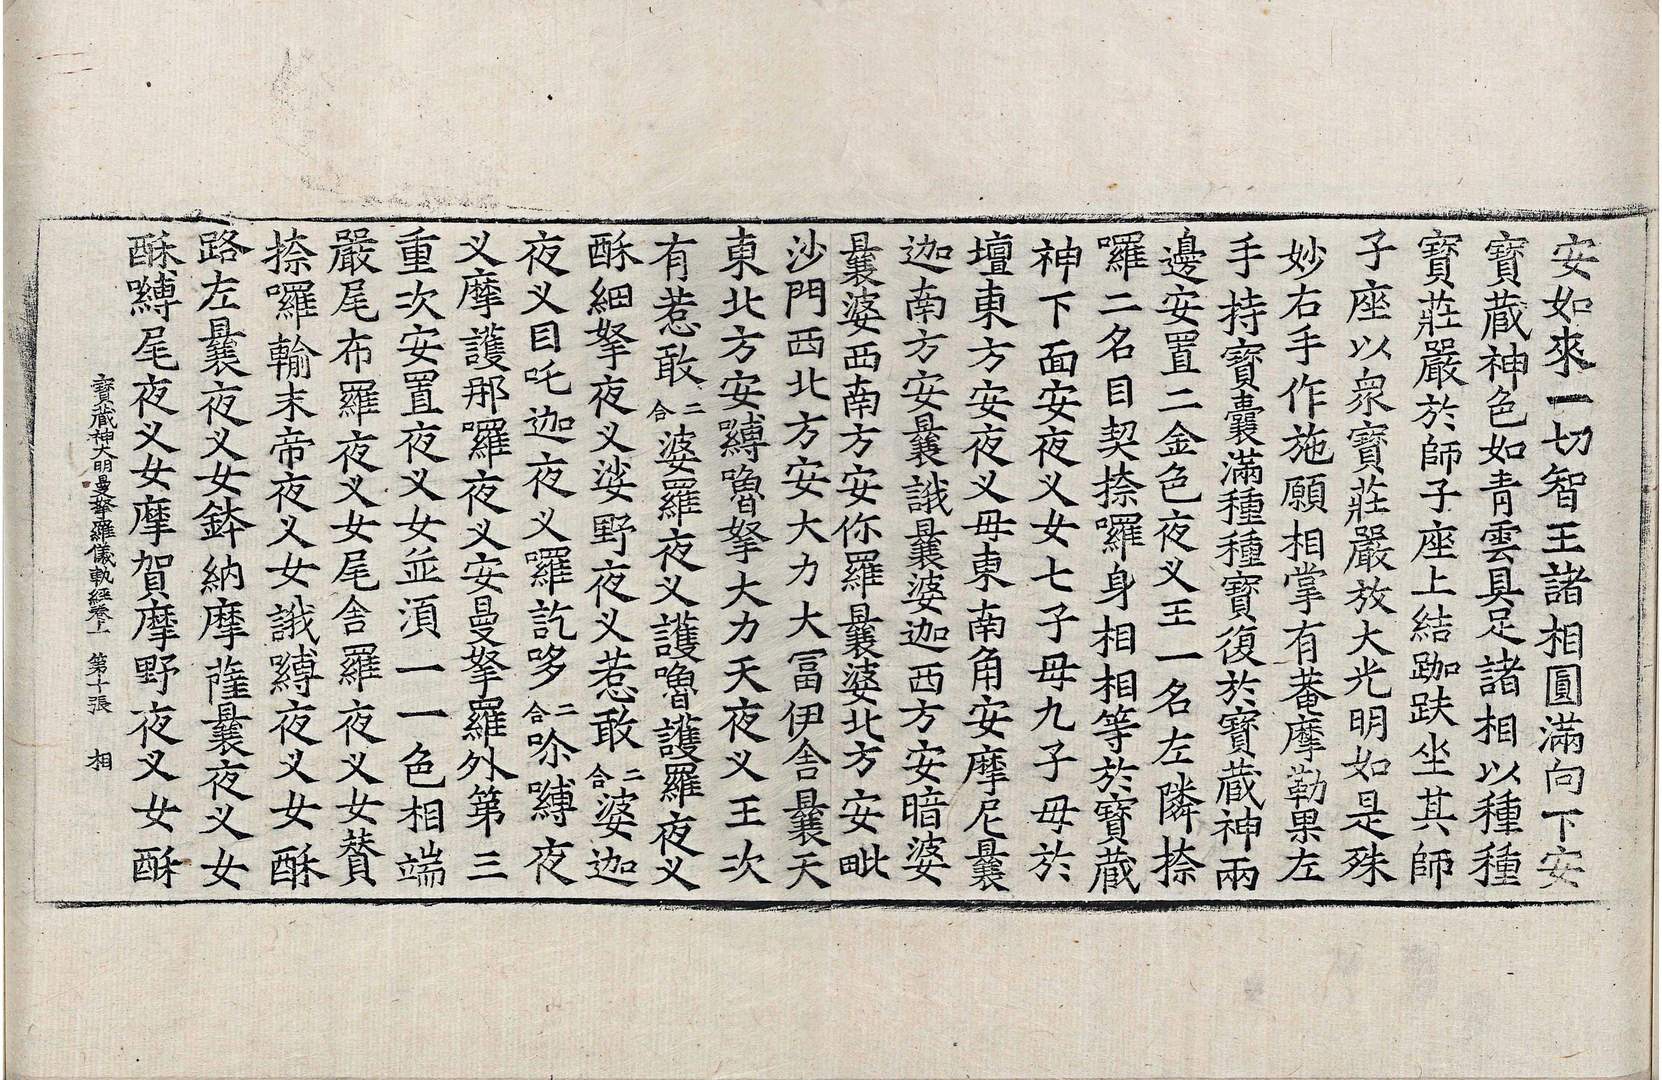 安如來一切智王諸相圓滿向下安
寶蔵神色如青雲具足諸相以種種
寶莊嚴於師子座上結跏趺坐其師
子座以衆寶莊嚴放大光明如是殊
妙右手作施願相掌有菴摩勒果左
手持寶囊滿種種寶復於寶蔵神兩
邊安置二金色夜叉王一名左隣捺
囉二名目契捺囉身相相等於寶蔵
神下面安夜叉女七子母九子母於
壇東方安夜叉母東南角安摩尼曩
迦南方安曩誐曩婆迦西方安暗婆
曩婆西南方安你羅曩婆北方安毗
沙門西北方安大力大冨伊舎曩天
東北方安嚩嚕拏大力天夜叉王次
有惹敢二合婆羅夜叉護嚕護羅夜叉
酥細拏夜叉娑野夜叉惹敢二合婆迦
夜叉目吒迦夜叉囉訖哆二合哆嚩夜
叉摩護那囉夜叉安曼拏羅外第三
重次安置夜叉女並湏一一色相端
嚴尾布羅夜叉女尾舎羅夜叉女賛
捺囉輸末帝夜叉女誐嚩夜叉女酥
路左曩夜叉女鉢納摩薩曩夜叉女
酥嚩尾夜叉女摩賀摩野夜叉女酥
寶蔵神大明曼拏羅儀軌経卷上 第十張 相